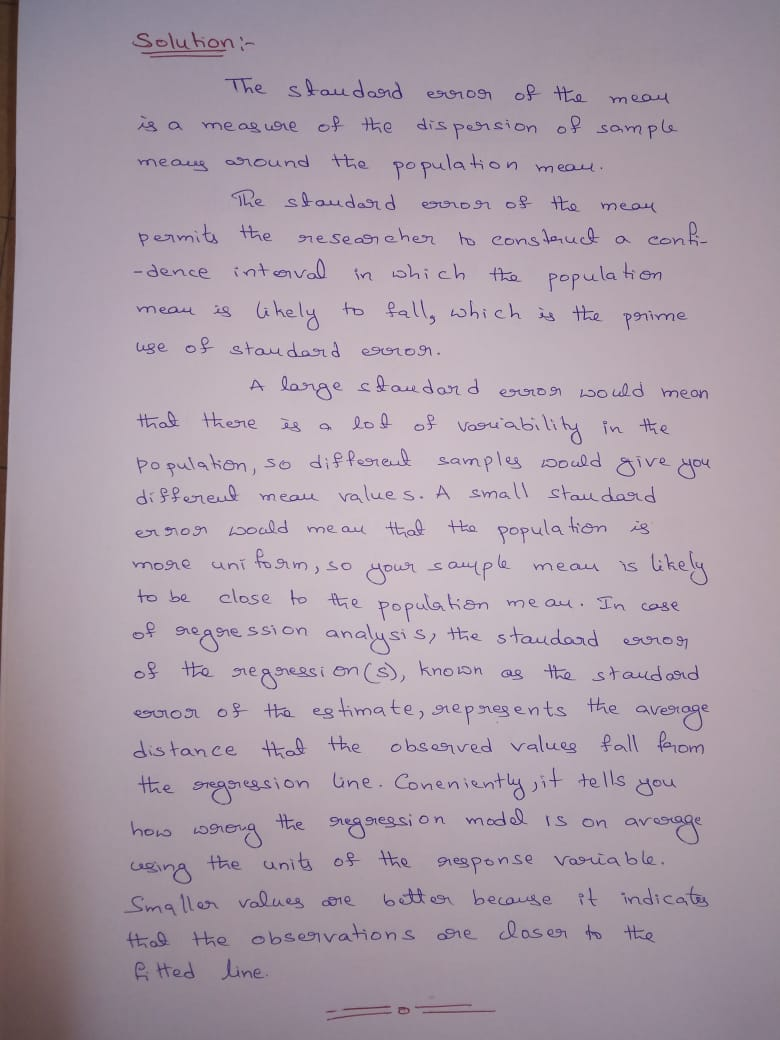 Solution:-
The standard error of the mean
is a measure of the dispersion of sample
means around the population mean.
The standard error of the mean
permits the researcher to construct a confi-
-dence interval in which the population
mean is likely to fall, which is the prime
use of standard error.
A large standard error would mean
that there is a lot of variability in the
population, so different samples would give you
different mean values. A small standard
error would mean that the population is
more uniform, so your sample mean is likely
to be close to the population mean. In case
of regression analysis, the standard error
of the regression(s), known as the standard
error of the estimate, represents the average
distance that the observed values fall from
the regression line. Coneniently, it tells you
how wrong the regression model is on average
using the units of the response variable.
Smaller values are better because it indicates
that the observations are closer to the
fitted line.